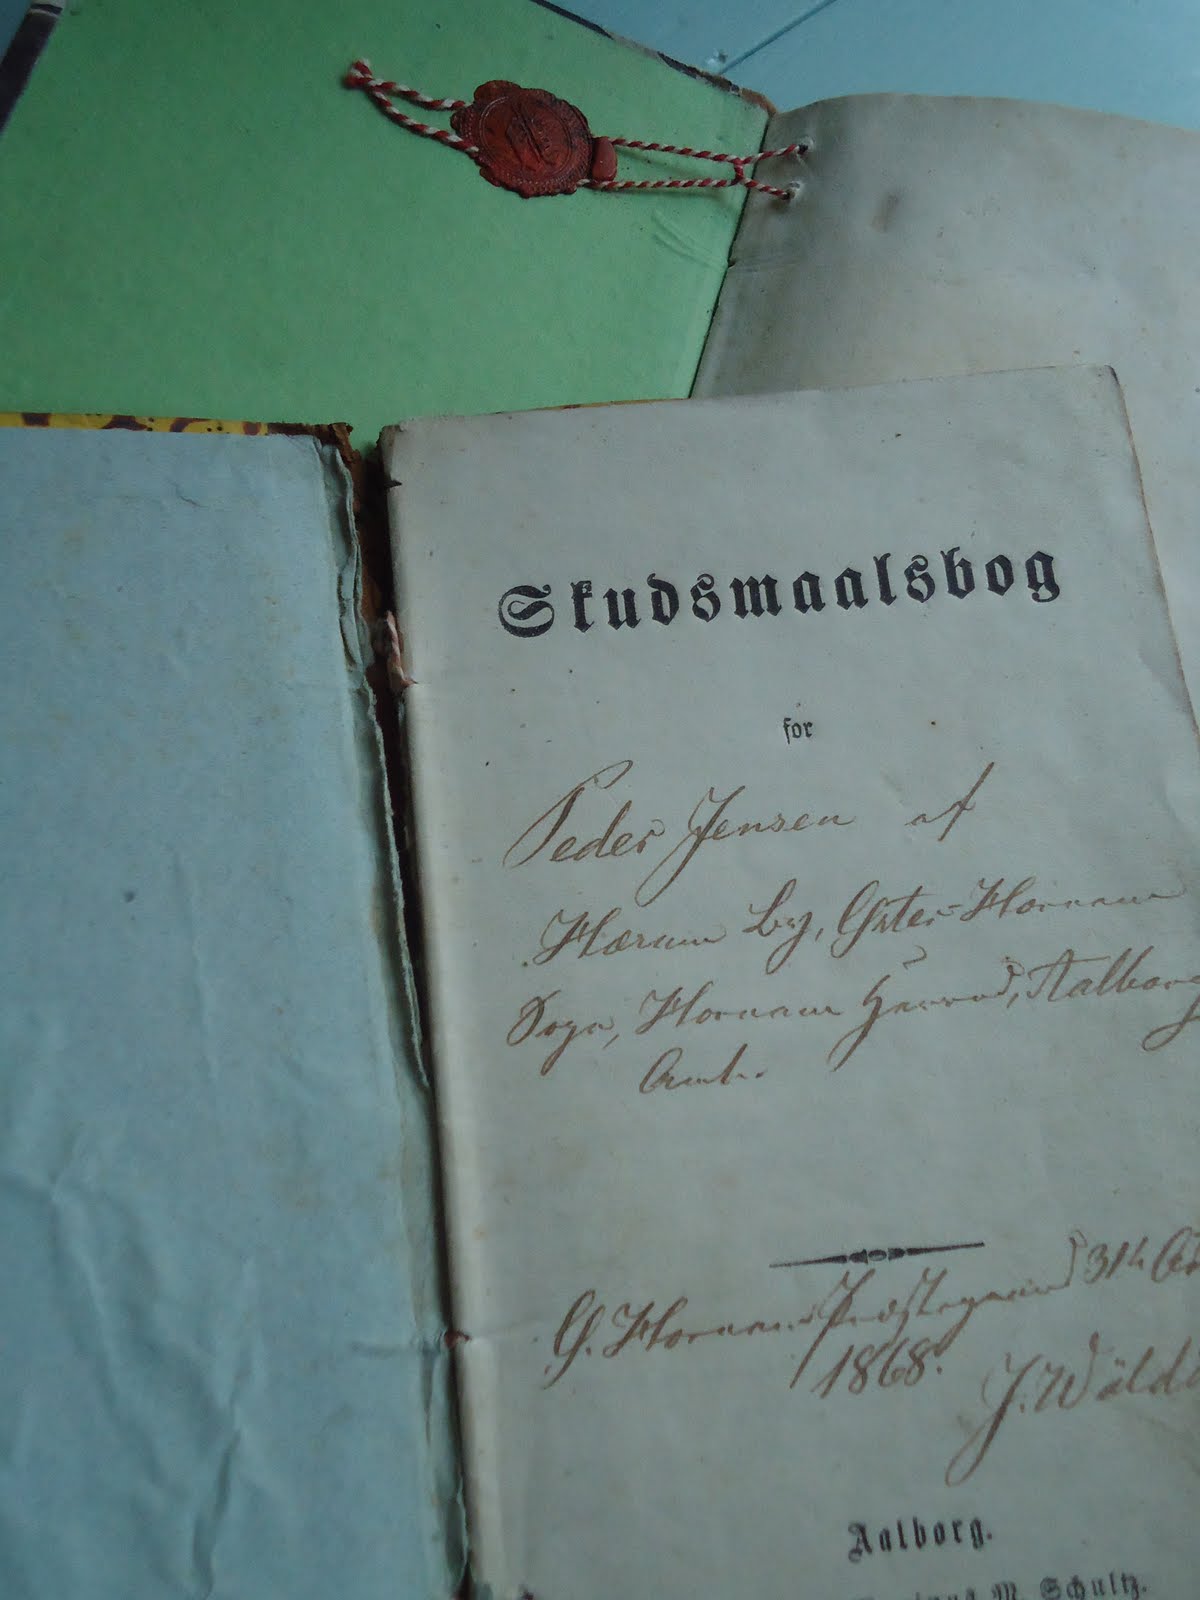 Skudsmaalsbog
for
Peder Jensen af
Hærum By, Øster-Hornum
Sogn, Hornum Herred, Aalborg
Amt.
Ø. Hornum Præstegaard 31te
1868.
J. Wäldi
Aalborg.
M. Schultz.